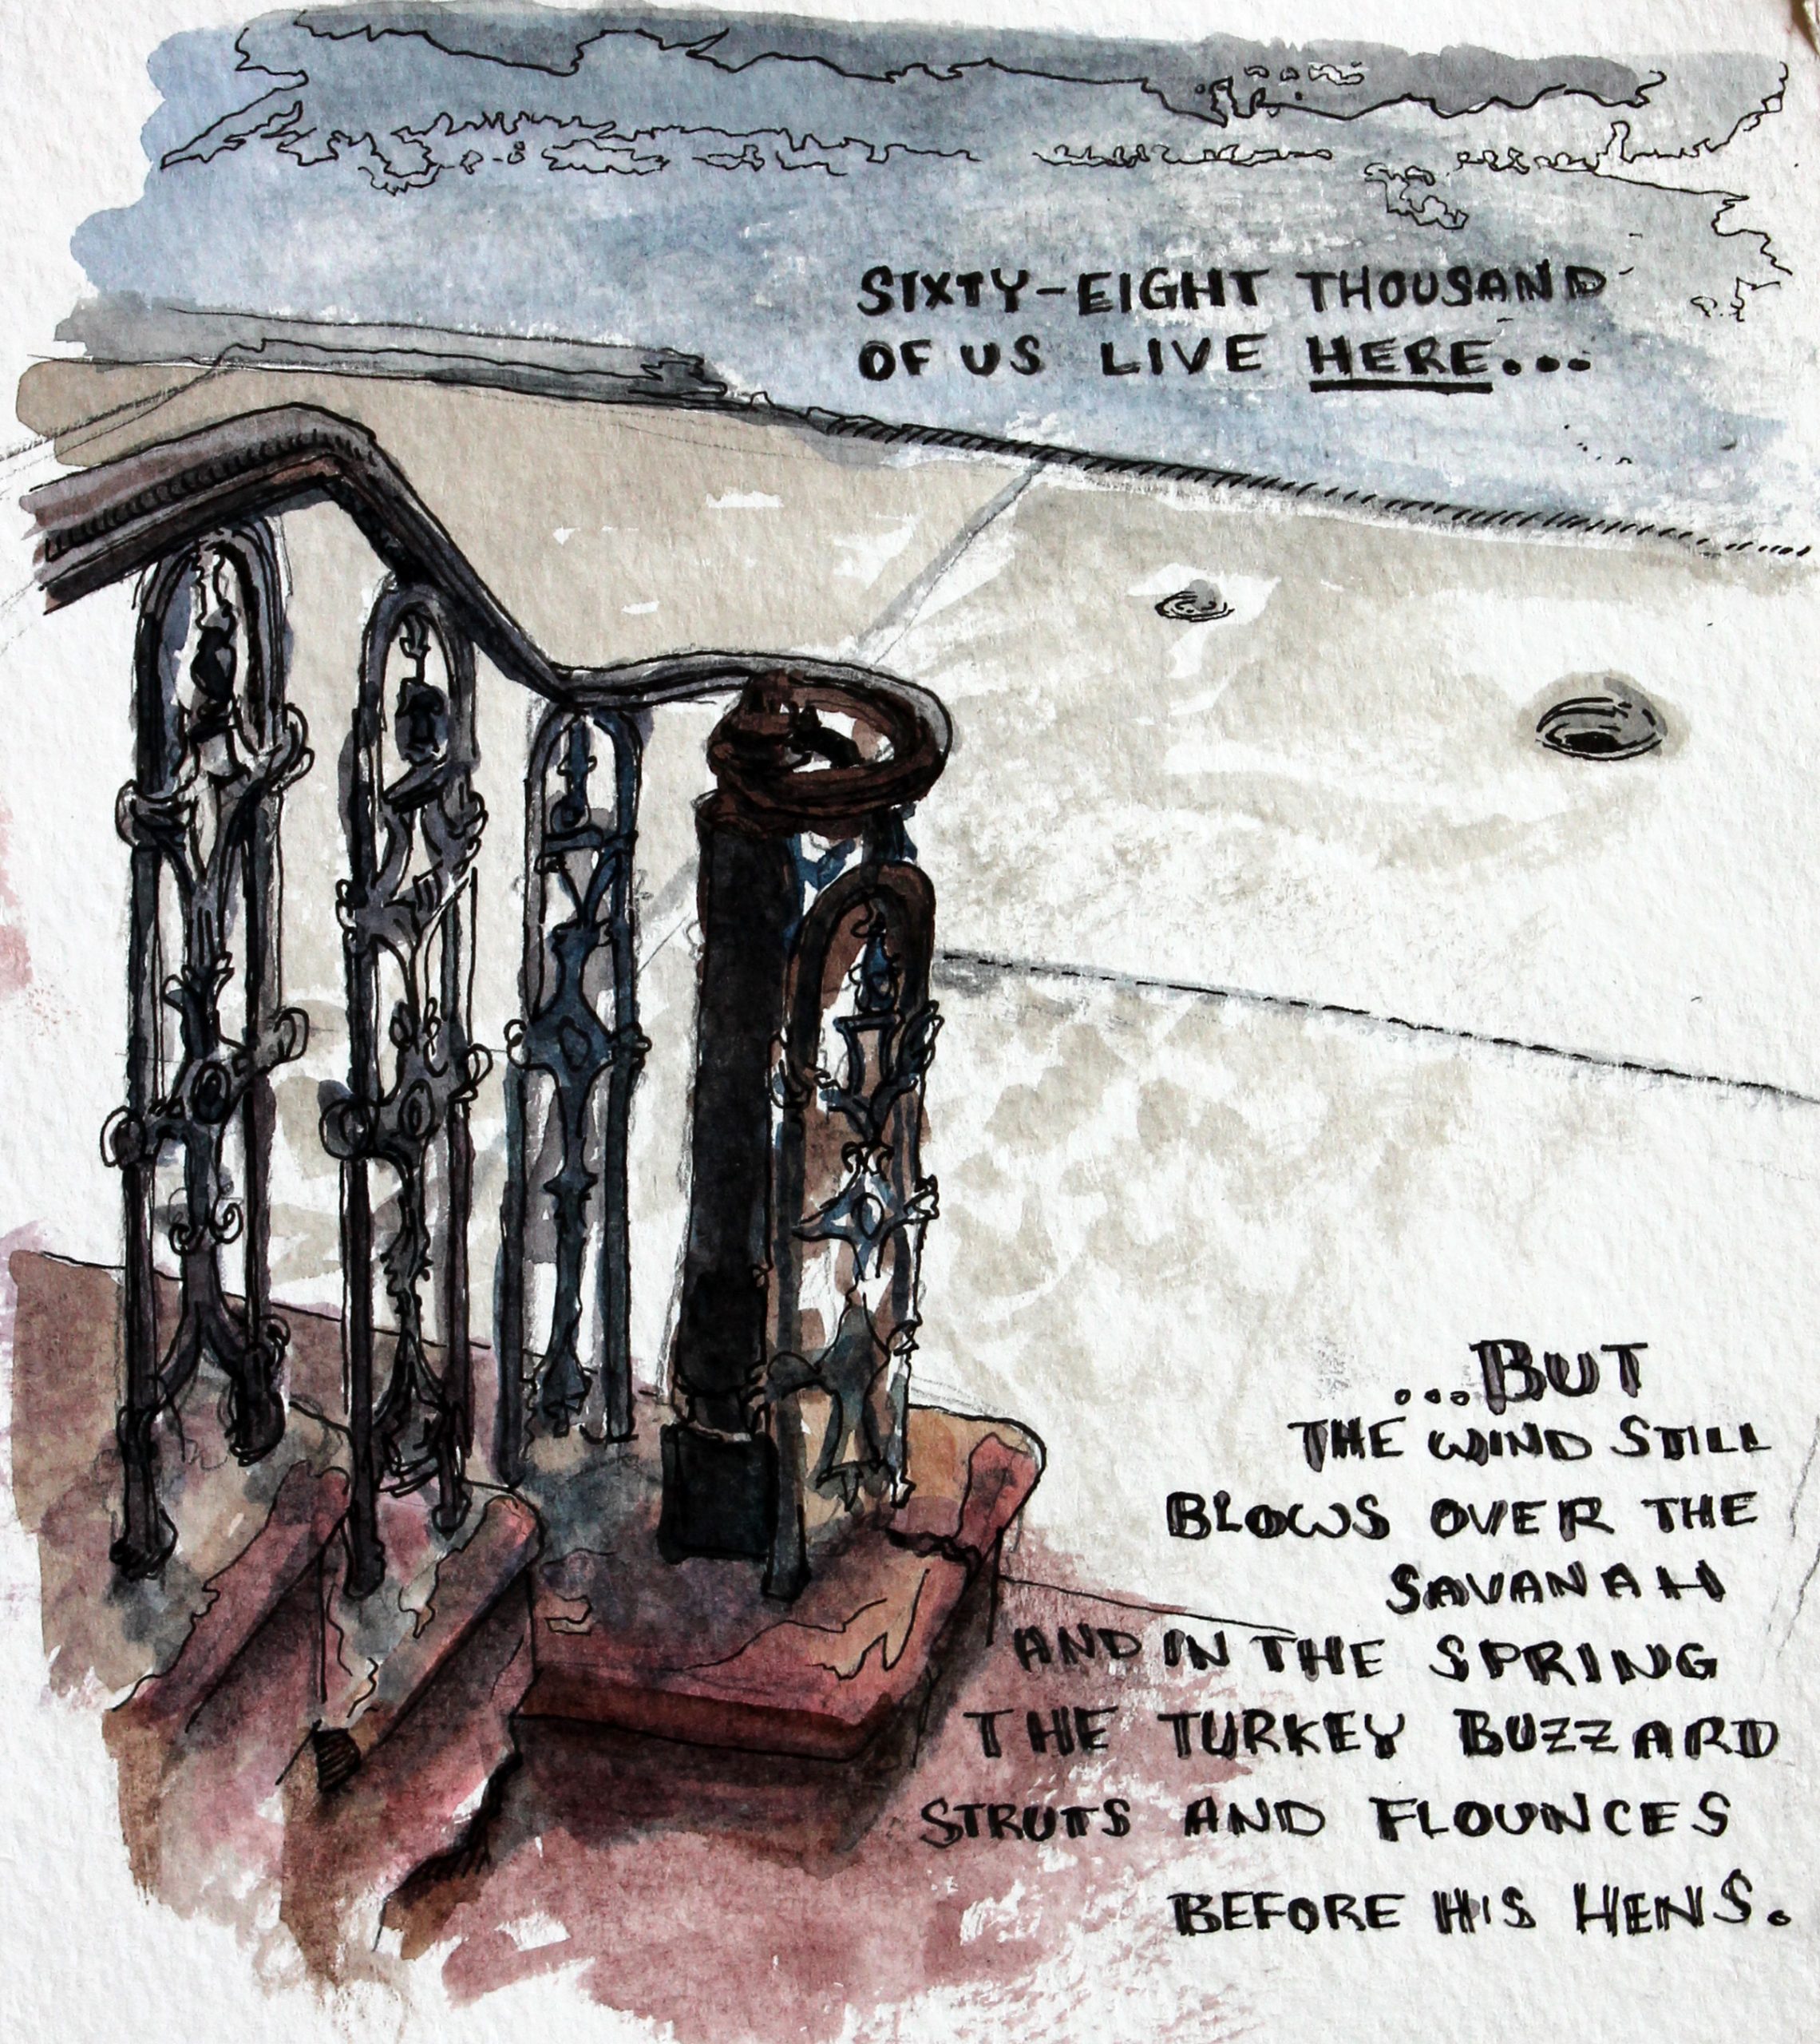 SIXTY-EIGHT THOUSAND
OF US LIVE HERE...
...BUT
THE WIND STILL
BLOWS OVER THE
SAVANAH
AND IN THE SPRING
THE TURKEY BUZZARD
STRUTS AND FLOUNCES
BEFORE HIS HENS.